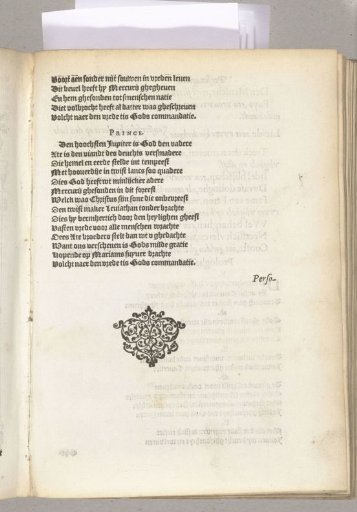 Voort aen sonder nijt souwen in vreden leuen
Dit beuel heeft hy Mercurius ghegheuen
En hem ghesonden tot smenschen natie
Diet volbracht heeft al datter was gheschreuen
Volcht naer den vrede tis Gods commandatie.
PRINCE.
Den hoochsten Jupiter is God den vadere
Ate is den viandt des deuchts versmadere
Die hemel en eerde stelde int tempeest
Met hoouerdije in twist lancx soo quadere
Dies God heeft we minlijcker adere
Mercuri ghesonden in dit foreest
Welch was Christus sijn sone die onbevreest
Den twist maker Leuiathan tonder brachte
Dies hy vermhertich door den heylighen gheest
Vasten vrede voor alle menschen wrachte
Dees Ate vroeders stelt dan we u ghedachte
Want ons verschenen is Gods milde gratie
Hopende op Mariams suyuer drachte
Volcht naer den vrede tis Gods commandatie.
Perso-